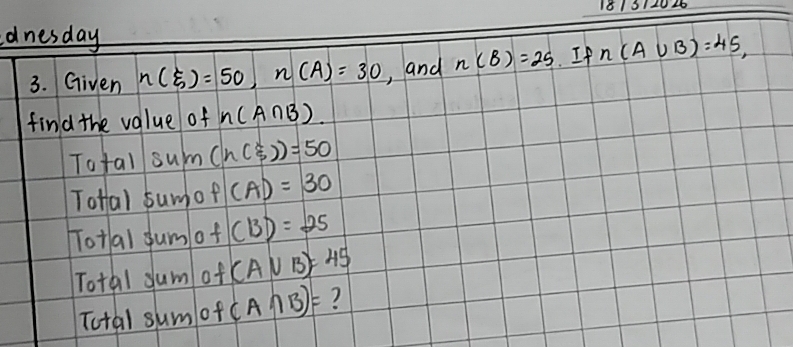 18/3/2026
dnesday
3. Given n(ξ)=50, n(A)=30, and n(B)=25. If n(A∪B)=45,
find the value of n(A∩B).
Total sum(n(ξ))=50
Total sum of (A) = 30
Total sum of (B) = 25
Total sum of (A∪B)= 45
Total sum of (A∩B)= ?